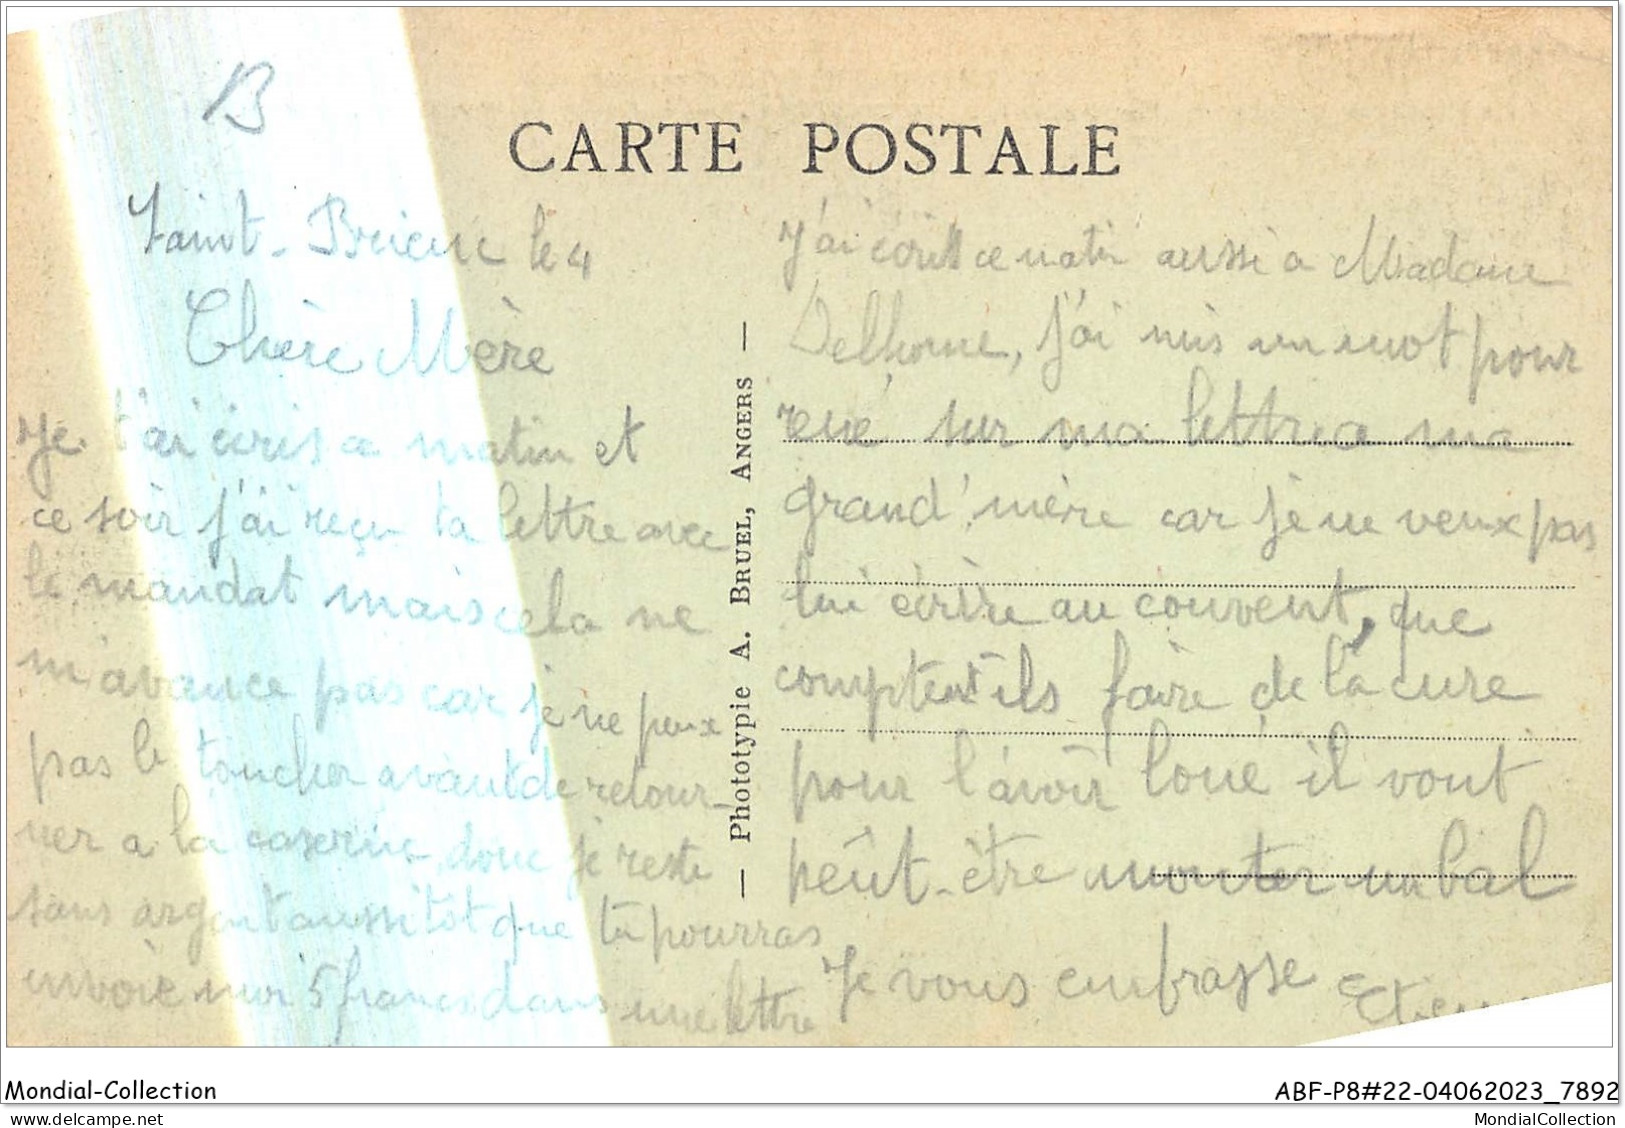 B
CARTE POSTALE
Saint-Brieuc le 4
Chère Mère
Je t'ai écris ce matin et
ce soir j'ai reçu ta lettre avec
le mandat mais cela ne
m'avance pas car je ne peux
pas le toucher avant de retour-
ner a la caserne, donc je reste
sans argent aussitôt que tu pourras
envoie moi 5 francs dans une lettre
— Phototypie A. Bruel, Angers —
J'ai écrit ce matin aussi a Madame
Delhome, j'ai mis un mot pour
sur ma lettre a ma
grand'mère car je ne veux pas
lui écrire au couvent, que
comptent ils faire de la cure
pour l'avoir loué il vont
peût-être monter un bal
Je vous embrasse
Mondial-Collection
ABF-P8#22-04062023_7892
www.delcampe.net
MondialCollection